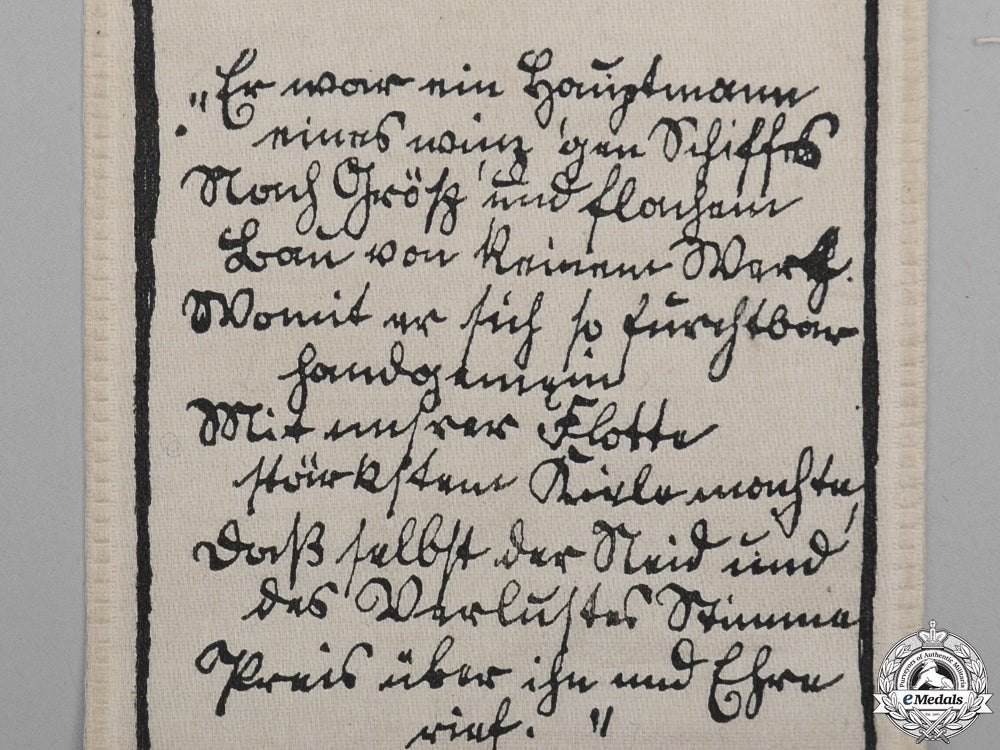 „Er war ein Hauptmann
eines winz'gen Schiffes
Nach Größ' und flachem
Bau von keinem Werth.
Womit er sich so furchtbar
handgemein
Mit unsrer Flotte
stärkstem Kiele machte,
Daß selbst der Neid und
des Verlustes Stimme
Preis über ihn und Ehre
rief."
Purveyors of Authentic Militaria
eMedals